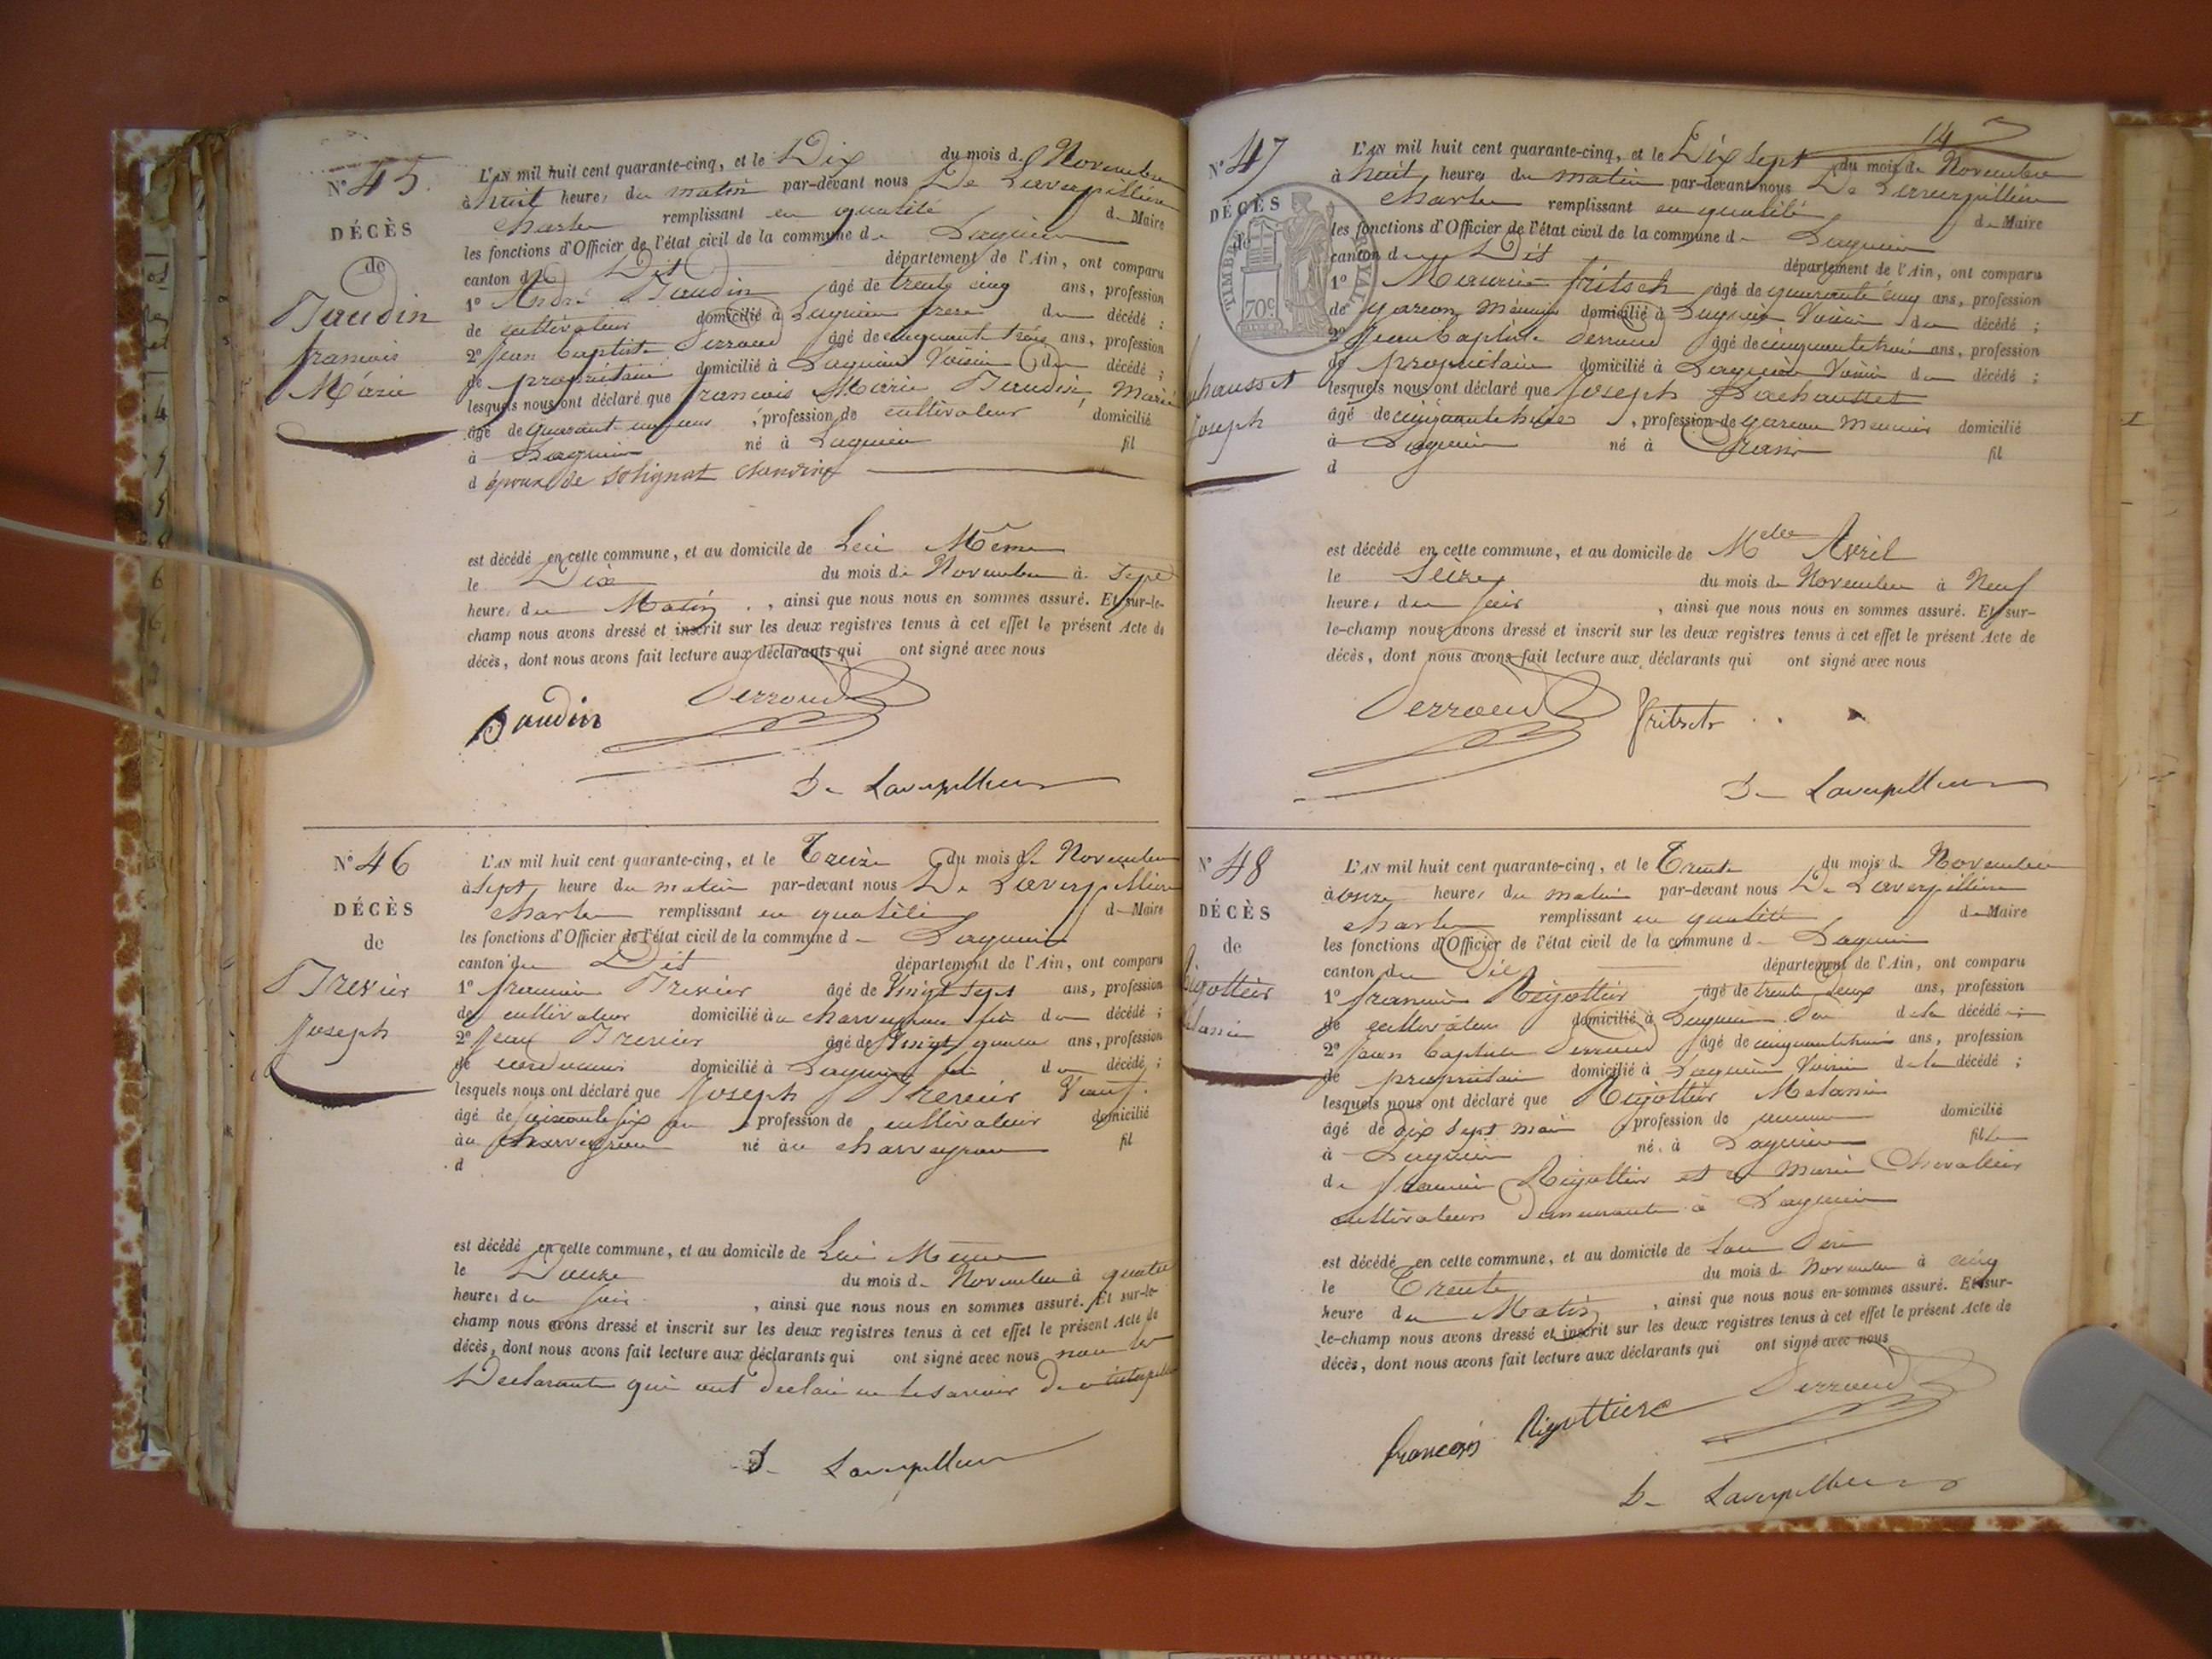 N° 45.
DÉCÈS
de
Baudin
francois
Marie
L'AN mil huit cent quarante-cinq, et le Dix du mois de Novembre
à huit heures du matin par-devant nous De Laverpillière
Charles remplissant en qualité de Maire
les fonctions d'Officier de l'état civil de la commune de Lagnieu
canton du Dit département de l'Ain, ont comparu
1° André Baudin âgé de trente cinq ans, profession
de cultivateur domicilié à Lagnieu frere du décédé ;
2° Jean Baptiste Serraud âgé de cinquante trois ans, profession
de propriétaire domicilié à Lagnieu Voisin du décédé ;
lesquels nous ont déclaré que francois Marie Baudin, Marié
âgé de quarante un ans, profession de cultivateur, domicilié
à Lagnieu né à Lagnieu fil
d époux de Solignat
est décédé en cette commune, et au domicile de Lui Même
le Dix du mois de Novembre à Sept
heures du Matin, ainsi que nous nous en sommes assuré. Et sur-le-
champ nous avons dressé et inscrit sur les deux registres tenus à cet effet le présent Acte de
décès, dont nous avons fait lecture aux déclarants qui ont signé avec nous
Baudin Serraud
De Laverpilliere
N° 46
DÉCÈS
de
Trevier
Joseph
L'AN mil huit cent quarante-cinq, et le Treize du mois de Novembre
à Sept heure du matin par-devant nous De Laverpillière
Charles remplissant en qualité de Maire
les fonctions d'Officier de l'état civil de la commune de Lagnieu
canton du Dit département de l'Ain, ont comparu
1° francois Trevier âgé de Vingt Sept ans, profession
de cultivateur domicilié au Charveyron fils du décédé ;
2° Jean Trevier âgé de Vingt quatre ans, profession
de cordonnier domicilié à Lagnieu fils du décédé ;
lesquels nous ont déclaré que Joseph Trevier Veuf.
âgé de Soixante Six ans, profession de cultivateur domicilié
au Charveyron né au Charveyron fil
d
est décédé en cette commune, et au domicile de Lui Même
le Douze du mois de Novembre à quatre
heures du Soir, ainsi que nous nous en sommes assuré. Et sur-le-
champ nous avons dressé et inscrit sur les deux registres tenus à cet effet le présent Acte de
décès, dont nous avons fait lecture aux déclarants qui ont signé avec nous non les
Declarants qui ont declaré ne le savoir de ce
De Laverpilliere
14
N° 47
DÉCÈS
de
TIMBRE ROYAL
70c
chausset
Joseph
L'AN mil huit cent quarante-cinq, et le Dix Sept du mois de Novembre
à huit heures du matin par-devant nous De Laverpillière
Charles remplissant en qualité de Maire
les fonctions d'Officier de l'état civil de la commune de Lagnieu
canton du Dit département de l'Ain, ont comparu
1° Maurice fritsch âgé de quarante cinq ans, profession
de garcon Meunier domicilié à Lagnieu Voisin du décédé ;
2° Jean Baptiste Serraud âgé de cinquante trois ans, profession
de propriétaire domicilié à Lagnieu Voisin du décédé ;
lesquels nous ont déclaré que Joseph Pachausset
âgé de cinquante huit, profession de garcon Meunier domicilié
à Lagnieu né à fil
d
est décédé en cette commune, et au domicile de Melle Avril
le Seize du mois de Novembre à Neuf
heures du Soir, ainsi que nous nous en sommes assuré. Et sur-
le-champ nous avons dressé et inscrit sur les deux registres tenus à cet effet le présent Acte de
décès, dont nous avons fait lecture aux déclarants qui ont signé avec nous
Serraud fritsch
De Laverpilliere
N° 48
DÉCÈS
de
Rigottier
Melanie
L'AN mil huit cent quarante-cinq, et le Trente du mois de Novembre
à onze heures du matin par-devant nous De Laverpillière
Charles remplissant en qualité de Maire
les fonctions d'Officier de l'état civil de la commune de Lagnieu
canton du Dit département de l'Ain, ont comparu
1° francois Rigottier âgé de trente deux ans, profession
de cultivateur domicilié à Lagnieu Père de la décédé ;
2° Jean Baptiste Serraud âgé de cinquante trois ans, profession
de propriétaire domicilié à Lagnieu Voisin de la décédé ;
lesquels nous ont déclaré que Rigottier Melanie
âgé de dix Sept mois profession de domicilié
à Lagnieu né à Lagnieu fille
de francois Rigottier et de Marie Chevallier
cultivateurs Demeurants à Lagnieu
est décédé en cette commune, et au domicile de Son Père
le Trente du mois de Novembre à cinq
heure du Matin, ainsi que nous nous en sommes assuré. Et sur-
le-champ nous avons dressé et inscrit sur les deux registres tenus à cet effet le présent Acte de
décès, dont nous avons fait lecture aux déclarants qui ont signé avec nous
francois Rigottiere Serraud
De Laverpilliere